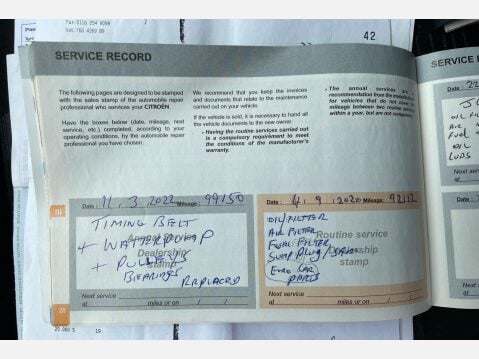 Fax:0116 254 9098
42
SERVICE RECORD
The following pages are designed to be stamped
with the sales stamp of the automobile repair
professional who services your CITROËN.
Have the boxes below (date, mileage, next
service, etc.) completed, according to your
operating conditions, by the automobile repair
professional you have chosen.
We recommend that you keep the invoices
and documents that relate to the maintenance
carried out on your vehicle.
If the vehicle is sold, it is necessary to hand all
the vehicle documents to the new owner.
- Having the routine services carried out
is a compulsory requirement to meet
the conditions of the manufacturer's
warranty.
- The annual services are
recommendation from the
for vehicles that do not
mileage between two routine
within a year, but are not
Date : 11, 3, 2022 Mileage: 99150
TIMING BELT
+ WATERPUMP
+ PULLEYS
BEARINGS REPLACED
Dealership
stamp
Next service
at miles or on / /
Date : 4, 9, 2020 Mileage: 92112
OIL FILTER
AIR FILTER
FUEL FILTER
SUMP PLUG
EURO CAR
PARTS
Routine service
Dealership
stamp
Next service
at miles or on / /
SERVICE RE
Date : 22
OIL FIL
AIR
FUEL
OIL
Next service
at
Date :
Next s
at
20.000 $ 19